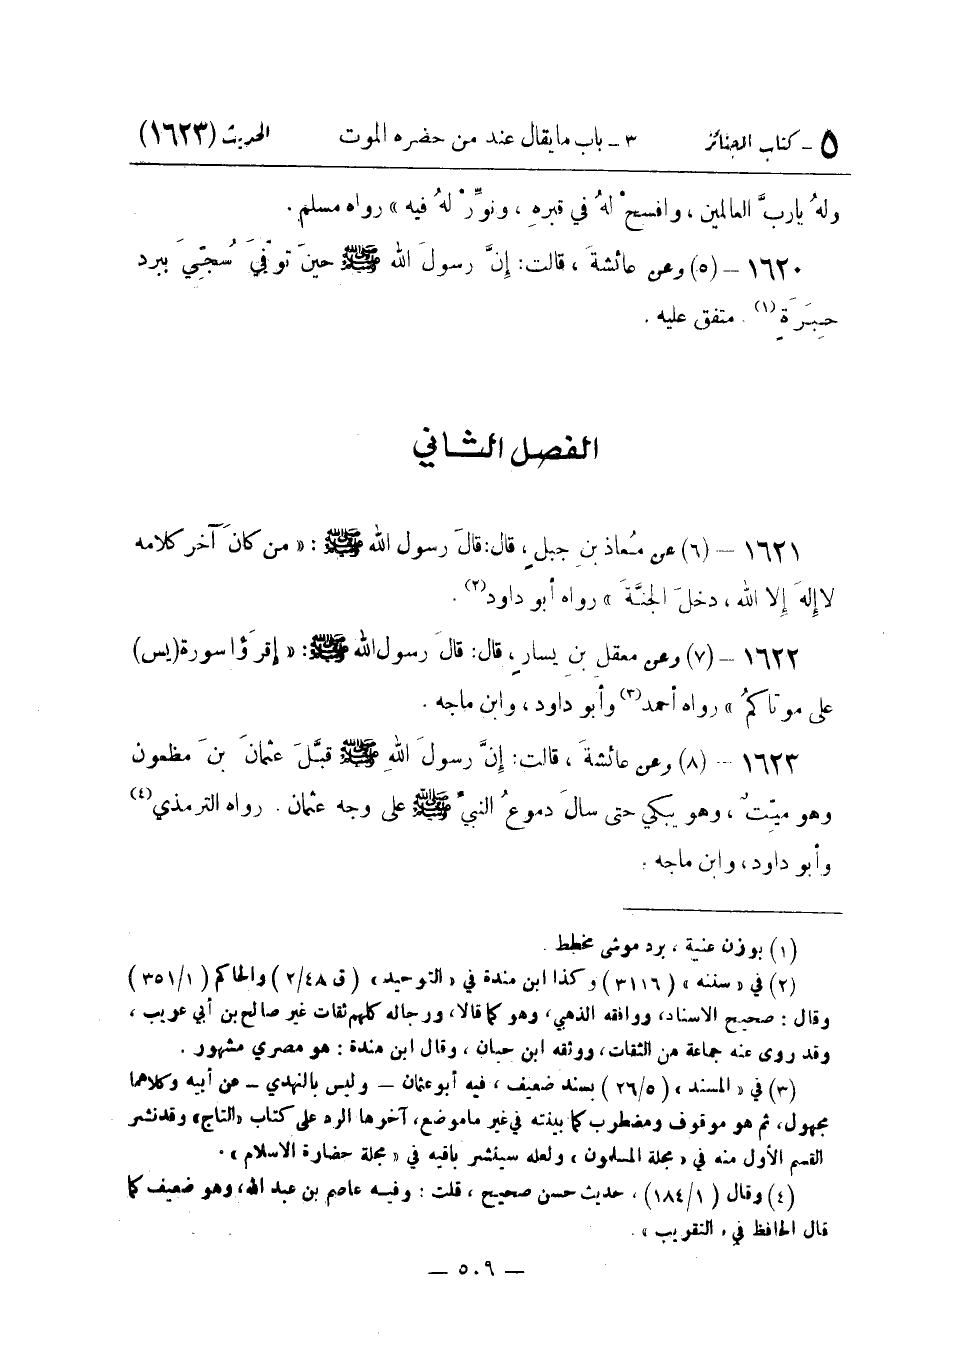 ٥ - كتاب الجنائز ٣ - باب ما يقال عند من حضره الموت الحديث (١٦٢٣)
ولهُ يا ربَّ العالمين ، وافسحْ لهُ في قبرهِ ، ونوِّرْ لهُ فيه » رواه مسلم .
١٦٢٠ - (٥) وعن عائشةَ ، قالت: إنَّ رسولَ الله ﷺ حينَ توفّيَ سُجّيَ ببرد
حِبَرَةٍ (١) . متفق عليه .
الفصل الثاني
١٦٢١ - (٦) عن مُعاذ بنِ جبلٍ ، قال: قالَ رسول الله ﷺ : « من كانَ آخر كلامه
لا إلهَ إلا الله ، دخلَ الجنَّةَ » رواه أبو داود(٢) .
١٦٢٢ - (٧) وعن معقل بنِ يسارٍ ، قال: قالَ رسول الله ﷺ: « إقرَؤا سورة (يس)
على موتاكمُ » رواه أحمد(٣) وأبو داود ، وابن ماجه .
١٦٢٣ - (٨) وعن عائشةَ ، قالت: إنَّ رسولَ اللهِ ﷺ قبَّلَ عثمانَ بنَ مظعون
وهو ميّتٌ ، وهو يبكي حتى سالَ دموعُ النبيِّ ﷺ على وجه عثمان . رواه الترمذي(٤)
وأبو داود ، وابن ماجه .
(١) بوزن عنبة ، برد موشى مخطط .
(٢) في « سننه » (٣١١٦) وكذا ابن مندة في « التوحيد » (ق ٢/٤٨) والحاكم (٣٥١/١)
وقال : صحيح الاسناد، ووافقه الذهبي، وهو كما قالا، ورجاله كلهم ثقات غير صالح بن أبي عريب ،
وقد روى عنه جماعة من الثقات، ووثقه ابن حبان ، وقال ابن مندة : هو مصري مشهور .
(٣) في « المسند » (٢٦/٥) بسند ضعيف ، فيه أبو عثمان - وليس بالنهدي - عن أبيه وكلاهما
مجهول، ثم هو موقوف ومضطرب كما بينته في غير ما موضع، آخرها الرد على كتاب «التاج» وقد نشر
القسم الأول منه في « مجلة المسلمون » ولعله سينشر باقيه في « مجلة حضارة الاسلام » .
(٤) وقال (١٨٤/١) ، حديث حسن صحيح ، قلت : وفيه عاصم بن عبد الله، وهو ضعيف كما
قال الحافظ في « التقريب » .
- ٥٠٩ -